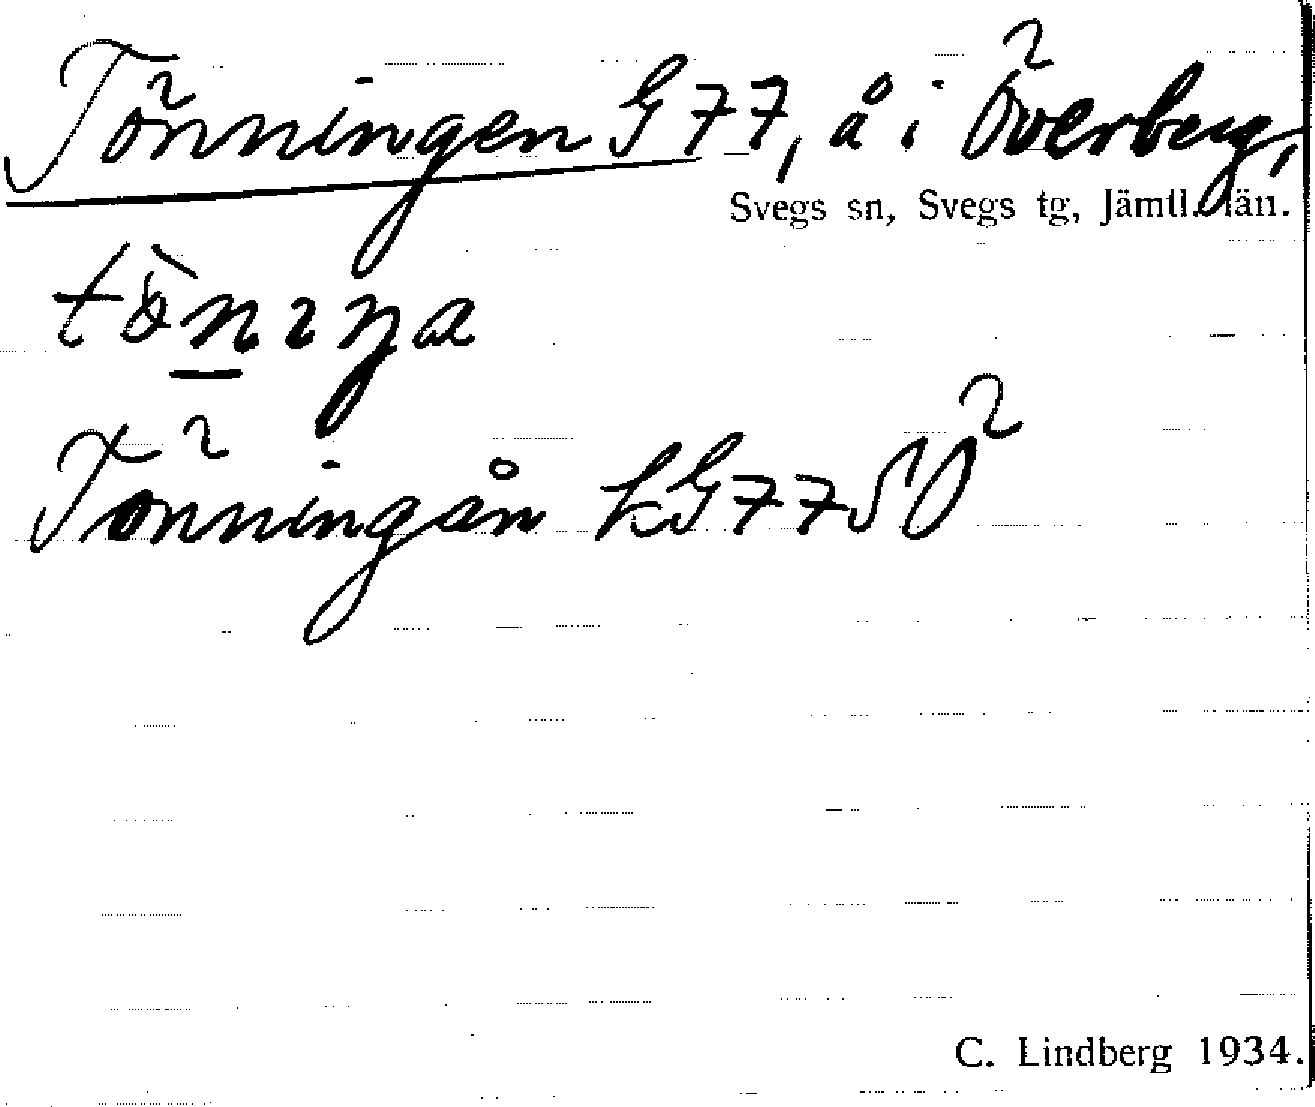 Tönningen G77, å i Överberg,
Svegs sn, Svegs tg, Jämtl. län.
tö̀nıŋa
Tönningån kG77SÖ
C. Lindberg 1934.